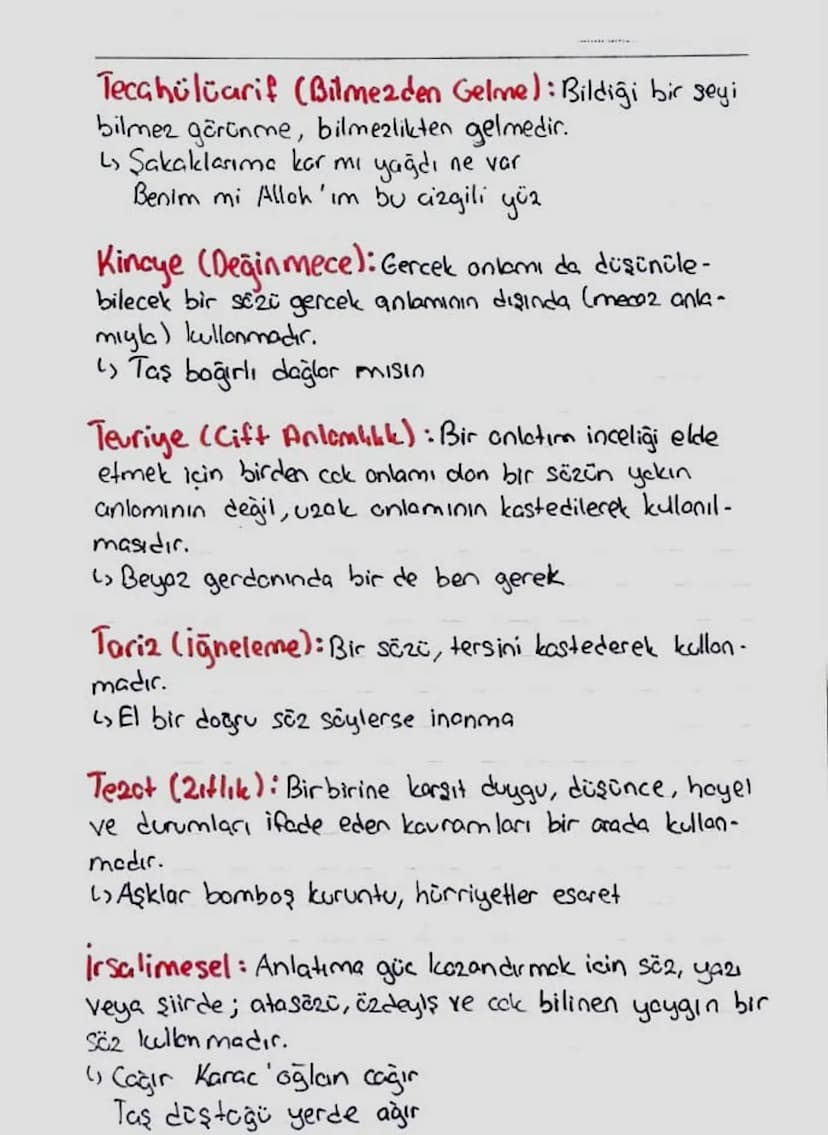 Tecahülüarif (Bilmezden Gelme): Bildiği bir şeyi
bilmez görünme, bilmezlikten gelmedir.
↳ Şakaklarıma kar mı yağdı ne var
Benim mi Allah'ım bu çizgili yüz
Kinaye (Değinmece): Gerçek anlamı da düşünüle-
bilecek bir sözü gerçek anlamının dışında (mecaz anla-
mıyla) kullanmadır.
↳ Taş bağırlı dağlar mısın
Tevriye (Çift Anlamlılık): Bir anlatım inceliği elde
etmek için birden çok anlamı olan bir sözün yakın
anlamının değil, uzak anlamının kastedilerek kullanıl-
masıdır.
↳ Beyaz gerdanında bir de ben gerek
Tariz (İğneleme): Bir sözü, tersini kastederek kullan-
madır.
↳ El bir doğru söz söylerse inanma
Tezat (Zıtlık): Birbirine karşıt duygu, düşünce, hayel
ve durumları ifade eden kavramları bir arada kullan-
madır.
↳ Aşklar bomboş kuruntu, hürriyetler esaret
İrsalimesel: Anlatıma güç kazandırmak için söz, yazı
veya şiirde; atasözü, özdeyiş ve çok bilinen yaygın bir
söz kullanmadır.
↳ Çağır Karac'oğlan çağır
Taş düştüğü yerde ağır